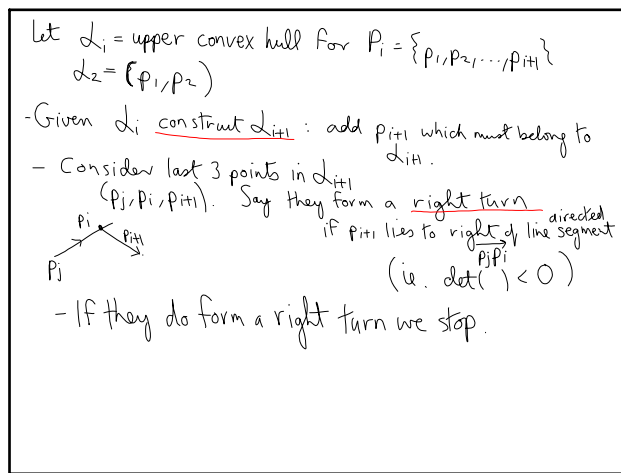 Let 𝓛i = upper convex hull for Pi = {p1, p2, ..., pi+1}
𝓛2 = (p1, p2)
- Given 𝓛i construct 𝓛i+1 : add pi+1 which must belong to
𝓛i+1.
- Consider last 3 points in 𝓛i+1
(pj, pi, pi+1). Say they form a right turn
if pi+1 lies to right of line directed segment
pjpi
(ie. det( ) < 0)
pi
pi+1
pj
- If they do form a right turn we stop.